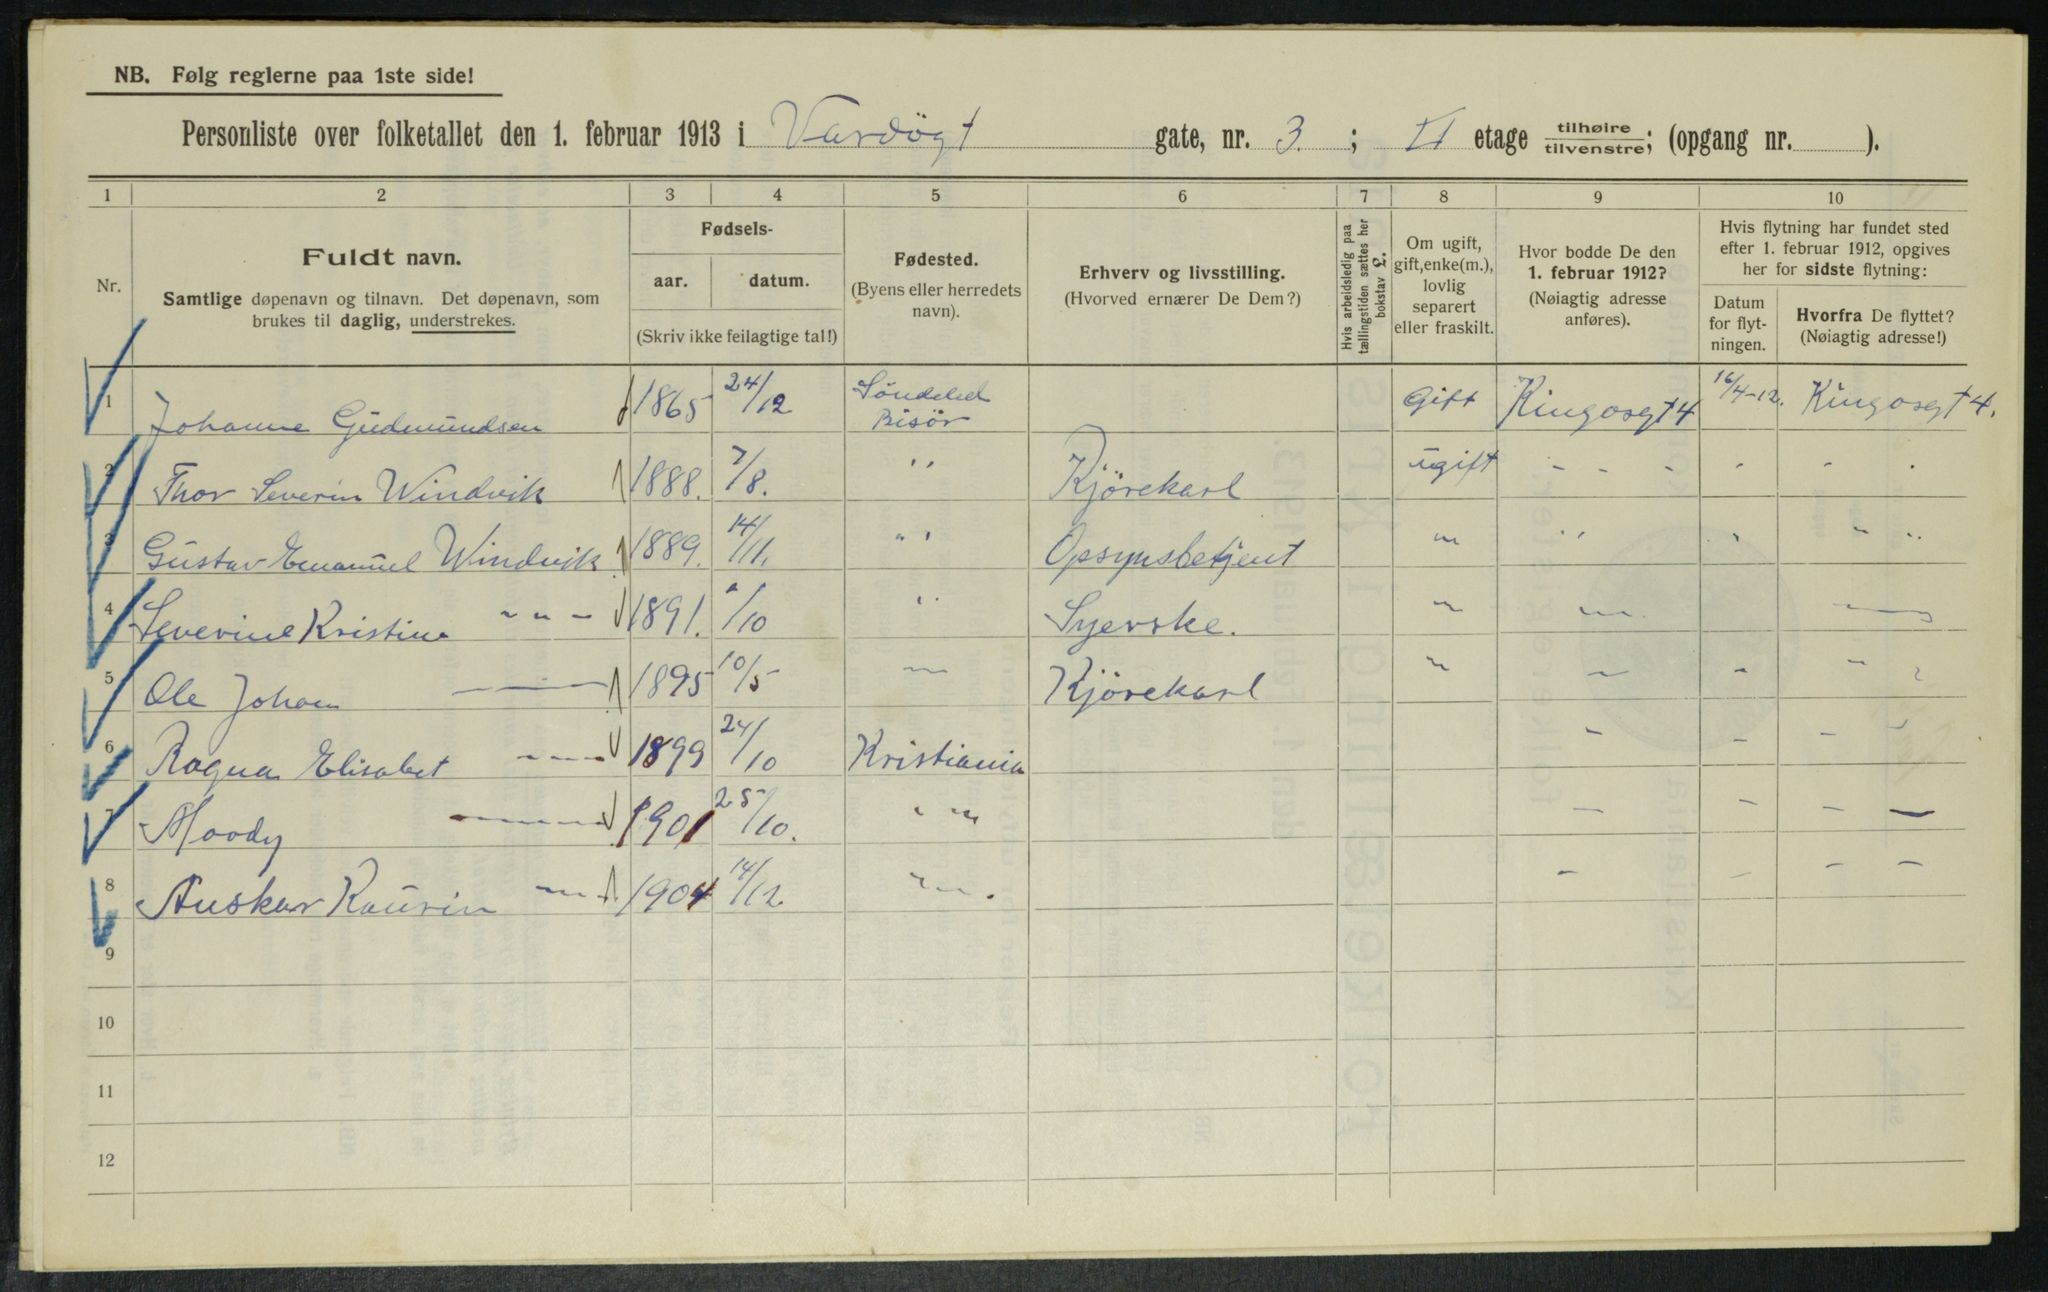 NB. Følg reglerne paa 1ste side!
Personliste over folketallet den 1. februar 1913 i Vardøgt gate, nr. 3. ; II etage tilhøire tilvenstre; (opgang nr. ).
1 2 3 4 5 6 7 8 9 10
Nr.
Fuldt navn.
Samtlige døpenavn og tilnavn. Det døpenavn, som
brukes til daglig, understrekes.
Fødsels-
aar. datum.
(Skriv ikke feilagtige tal!)
Fødested.
(Byens eller herredets
navn).
Erhverv og livsstilling.
(Hvorved ernærer De Dem?)
Hvis arbeidsledig paa
tællingstiden sættes her
bokstav L.
Om ugift,
gift, enke(m.),
lovlig
separert
eller fraskilt.
Hvor bodde De den
1. februar 1912?
(Nøiagtig adresse
anføres).
Hvis flytning har fundet sted
efter 1. februar 1912, opgives
her for sidste flytning:
Datum
for flyt-
ningen.
Hvorfra De flyttet?
(Nøiagtig adresse!)
1 Johanne Gudmundsen 1865 24/12 Søndeled Risör Gift Kingosgt 4 16/4-12. Kingosgt 4.
2 Thor Severin Windvik 1888. 7/8. " Kjörekarl ugift - - - - - -
3 Gustav Emanuel Windvik 1889. 14/11. " Opsynsbetjent " " " " "
4 Severine Kristine " " " 1891. /10 " Syerske. " " —
5 Ole Johan — 1895 10/5 " Kjörekarl " " " " "
6 Ragna Elisabet " 1899 24/10 Kristiania - - - -
7 Moody — 1901 25/10. " " - - - -
8 Anskar Kaurin " 1904 14/12. " - - - -
9
10
11
12